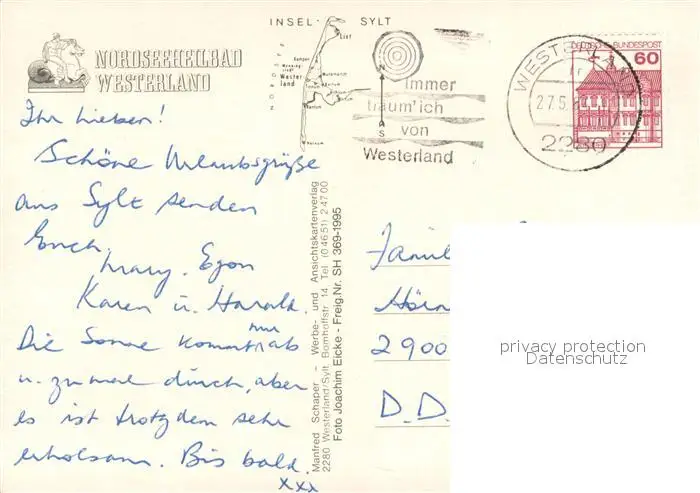 NORDSEEHEILBAD
WESTERLAND
INSEL SYLT
List
Kampen
Wester
land
Rantum
Hörnum
NORDSEE
N
S
Immer
träum' ich
von
Westerland
WESTERLAND
27.5.
2280
DEUTSCHE BUNDESPOST
60
Ihr Lieben!
Schöne Urlaubsgrüße
aus Sylt senden
Euch
Mary, Egon
Karen u. Harald.
Die Sonne kommt nur ab
u. zu mal durch, aber
es ist trotzdem sehr
erholsam. Bis bald.
xxx
Manfred Schaper - Werbe- und Ansichtskartenverlag
2280 Westerland/Sylt Bomhoffstr. 14 Tel. (04651) 24700
Foto Joachim Eicke - Freig.Nr. SH 369-1995
Famil
2900
D.D.
privacy protection
Datenschutz